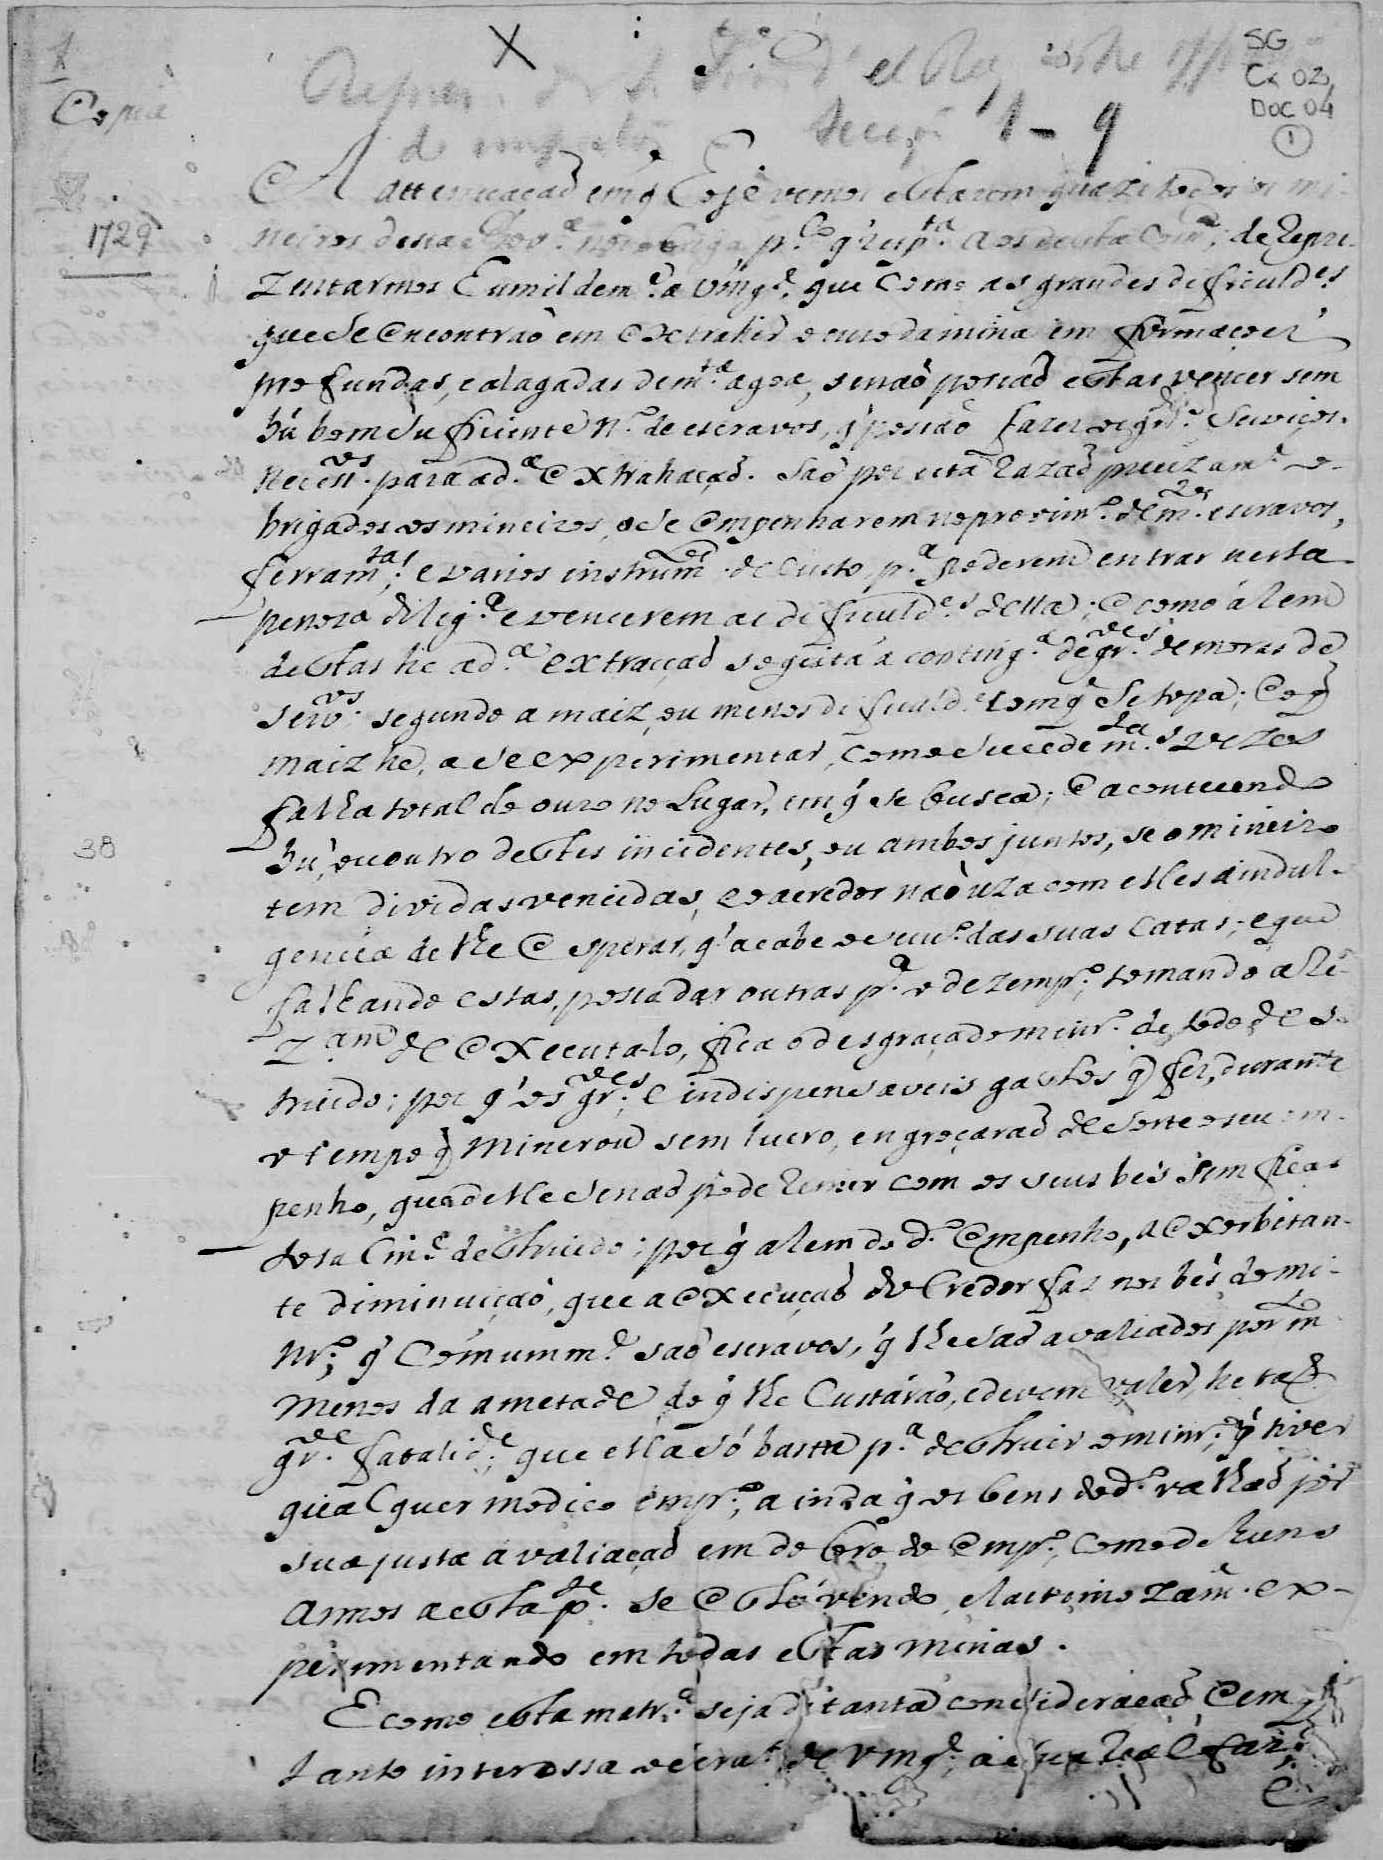 1
X
SG
Cx 02,
Doc 04
1
Copia
de
1 - 9
A attenuaçaõ em q̃ hoje vemos estarem quazi todos os mi-
neiros desta nos obriga p.lo q̃ resp.ta aos desta Com.ca de Repre-
1729
zentarmos humildem.e a Vmg.e que como as grandes deficuld.es
que se encontraõ em extrahir o ouro da mina em formaçoes
profundas, e alagadas de m.ta agoa, senaõ posaõ estas vencer sem
hú bom suficiente N.o de escravos, q̃ posaõ fazer os gr.des serviços
neces.vos para a d.a extrahaçaõ. Saõ por esta razaõ precizam.e o-
brigados os mineiros, a se empenharem no provim.to de m.tos escravos,
ferram.tas; e varios instrum.tos de custo p.a poderem entrar nesta
penoza dilig.a e vencerem as dificuld.es della; e como álem
destas he a d.a extracçaõ sogeita á conting.a de gr.des demoras de
serv.os segundo a maiz, ou menos dificuld.e com q̃ se topa; e o q̃
maiz he, a se experimentar, como sucede m.tas vezes
falha total de ouro no Lugar, em q̃ se busca; e acontecendo
hú, ou outro destes incidentes, ou ambos juntos, se o mineiro
38
tem dividas vencidas, e o acredor naõ uza com elles a indul-
gencia de lhe esperar, q̃ acabe o serviço das suas catas; e que
falhando estas, possa dar outras p.a o dezemp.o; tomando a
de executalo, fica o desgraçado mineir.o de todo des-
truido; por q̃ os gr.des e indispensaveis gastos q̃ fez, durante
o tempo q̃ minerou sem lucro, engroçaraõ de sorte o seu em-
penho, que delle senaõ póde remir com os seus bés sem ficar
destruido: por q̃ alem do d.o empenho, a exorbitan-
te diminuiçaõ, que a execuçaõ do Credor faz nos bés do mi-
nr.o; q̃ comumm.e saõ escravos, q̃ lhe saõ avaliados por m.to
menos da ametade do q̃ lhe custáraõ, e devem valer, he taõ
gr.de fatalid.e; que ella só basta p.a destruir o minr.o; q̃ tiver
qualquer modico emp.o; ainda q̃ os bens do d.o valhaõ por
sua justa avaliaçaõ em dobro do emp.o; como de huns
annos a esta p.te se está vendo, e lastimozam.e ex-
perimentando em todas estas minas.
E como esta matr.a seja de tanta consideraçaõ, e em q̃
tanto interessa o erar.o de Vmg.e; a sua Real faz.